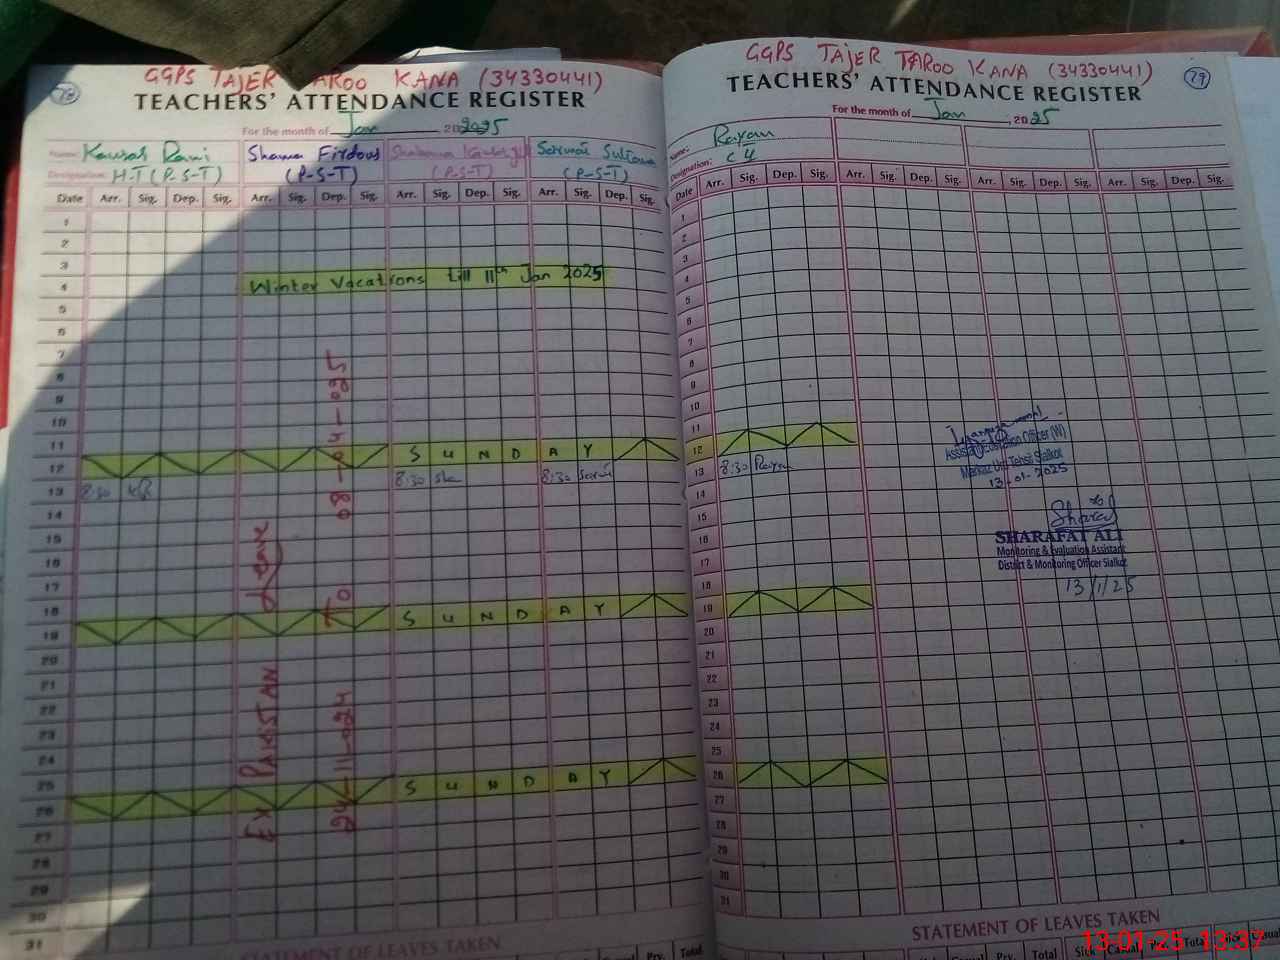 78
GGPS TAJER TAROO KANA (34330441)
TEACHERS' ATTENDANCE REGISTER
For the month of Jan 2025
Name: Kausar Rani Shama Firdous Shabana Sarwat Sultana
Designation: H.T (P.S.T) (P-S-T) (P-S-T) (P-S-T)
Date Arr. Sig. Dep. Sig. Arr. Sig. Dep. Sig. Arr. Sig. Dep. Sig. Arr. Sig. Dep. Sig.
1
2
3
4 Winter Vacations till 11th Jan 2025
5
6
7
8
9
10
11
12 SUNDAY
13 8:30 8:30 8:30
14
15
16
17
18
19 SUNDAY
20
21
22
23
24
25
26 SUNDAY
27
28
29
30
31
Ex PAKISTAN Leave
24-11-024 To 08-04-025
STATEMENT OF LEAVES TAKEN
Prv. Total
79
GGPS TAJER TAROO KANA (34330441)
TEACHERS' ATTENDANCE REGISTER
For the month of Jan, 2025
Name: Rayan
Designation: C4
Date Arr. Sig. Dep. Sig. Arr. Sig. Dep. Sig. Arr. Sig. Dep. Sig. Arr. Sig. Dep. Sig.
1
2
3
4
5
6
7
8
9
10
11
12
13 8:30 Rayan
14
15
16
17
18
19
20
21
22
23
24
25
26
27
28
29
30
31
Assistant Education Officer (W)
Markaz Tehsil Sialkot
13-01-2025
Sharaf
SHARAFAT ALI
Monitoring & Evaluation Assistant
District & Monitoring Officer Sialkot
13/1/25
STATEMENT OF LEAVES TAKEN
Total Sick Casual Prv. Total Sick Casual
13-01-25 13:37